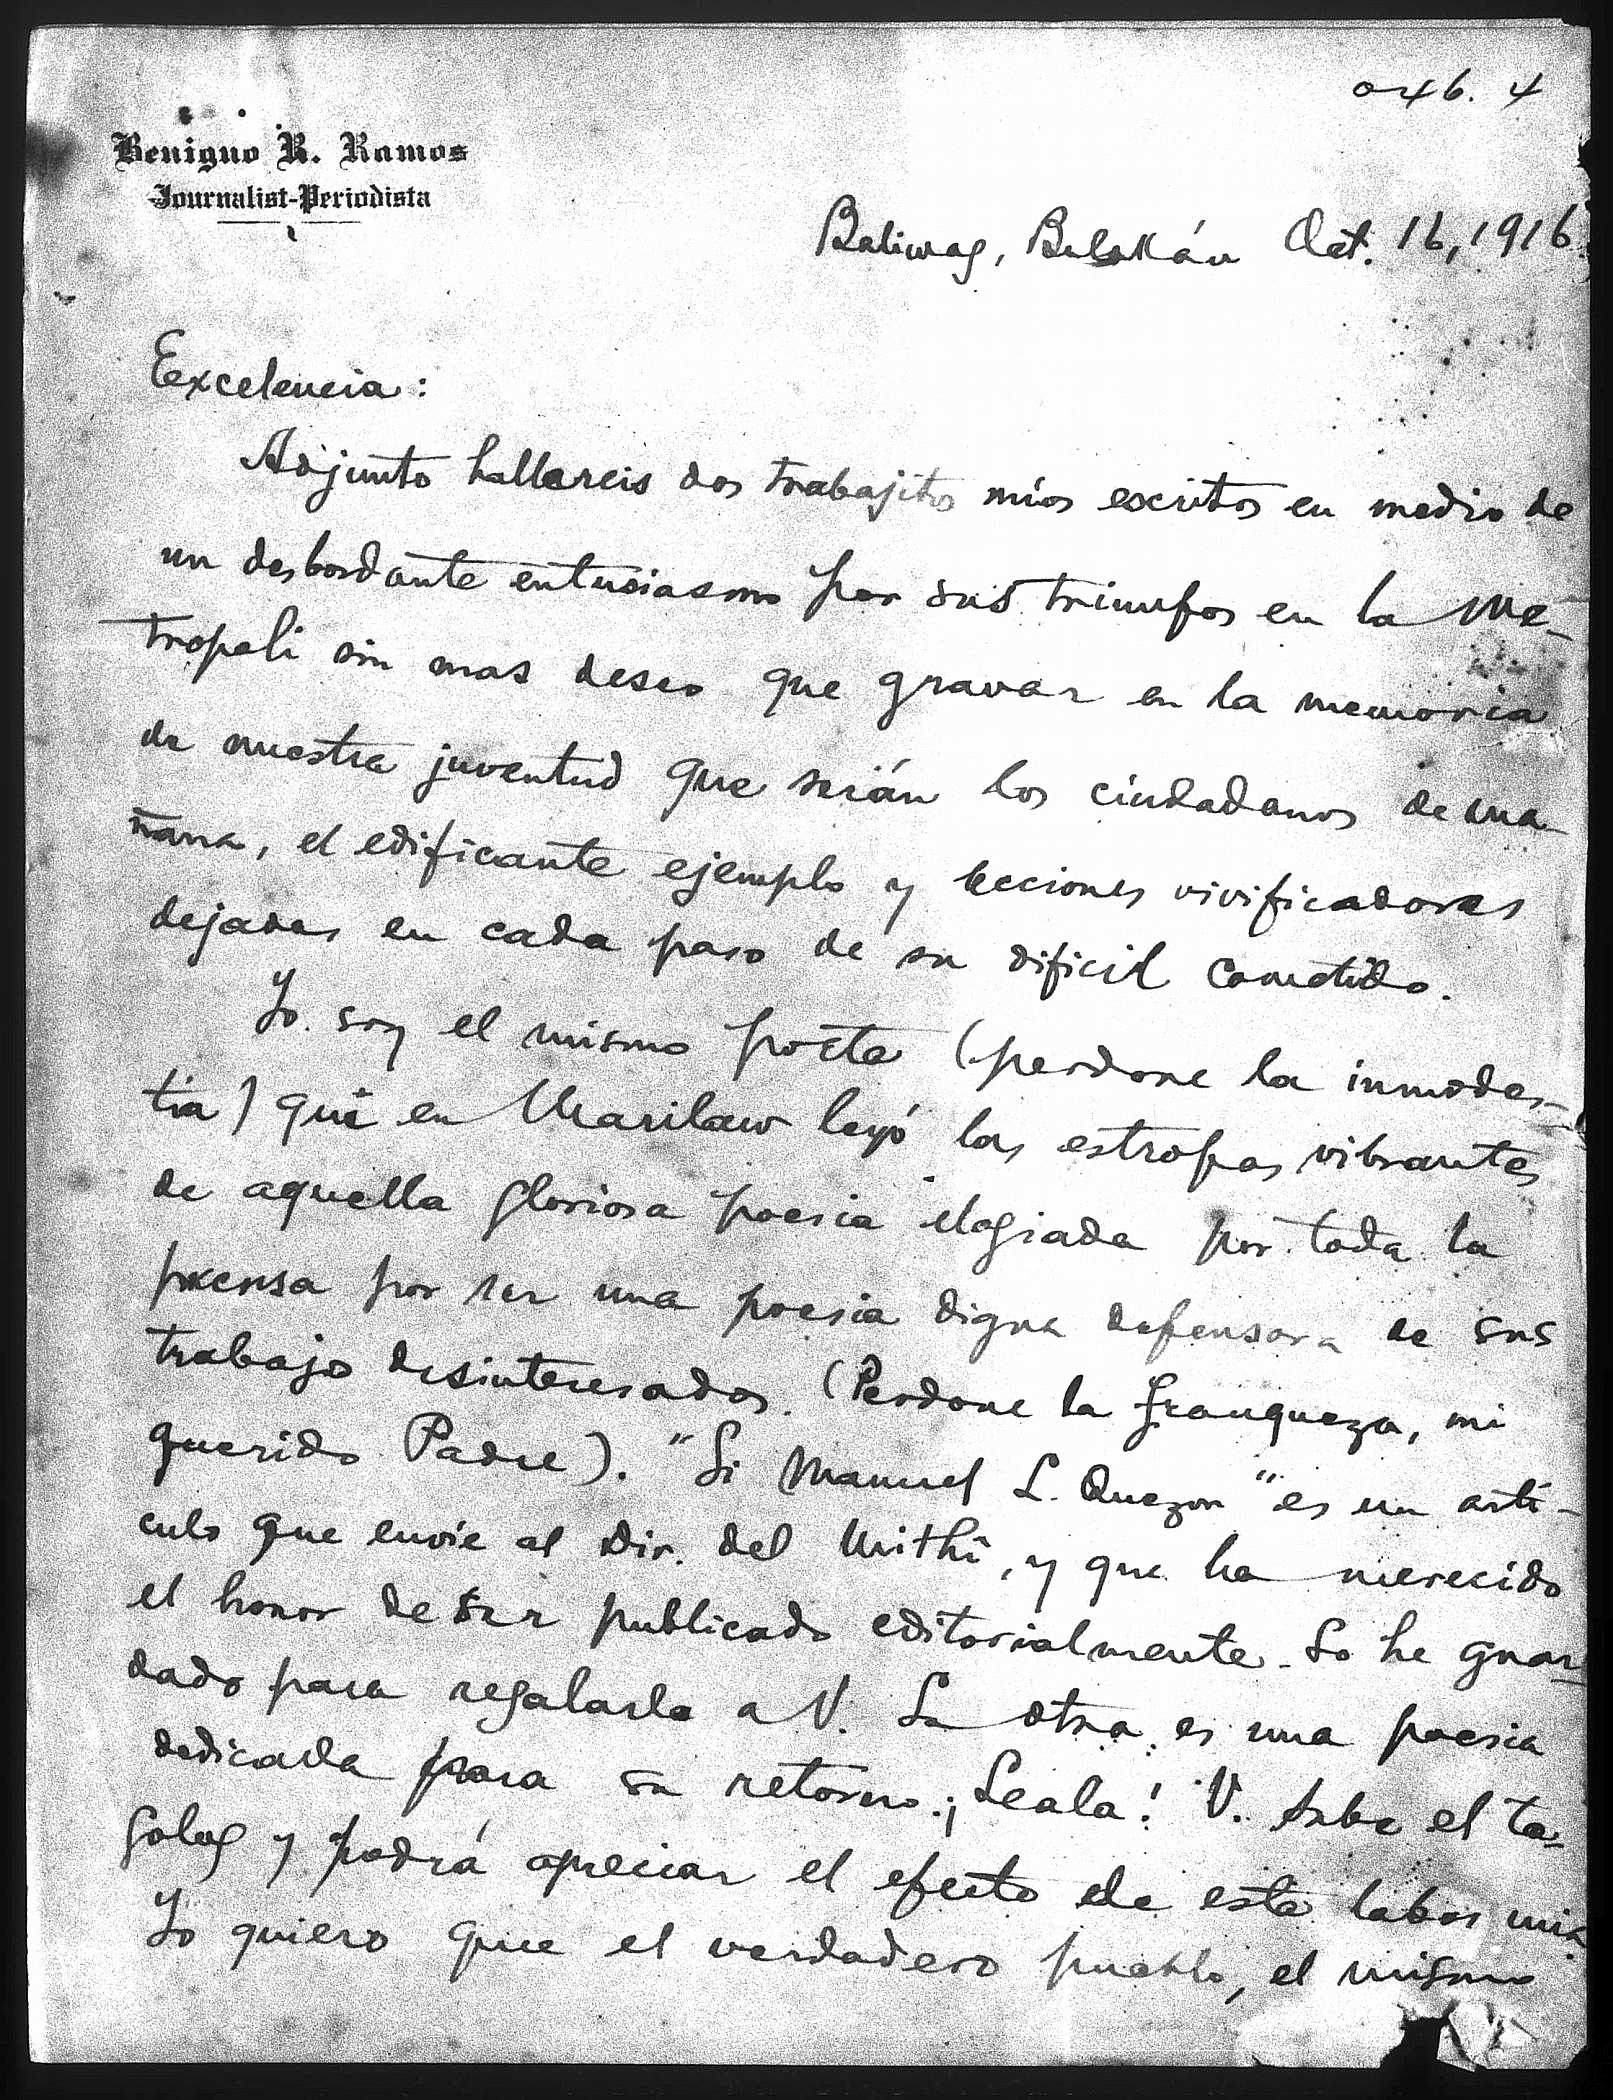 046. 4
Benigno R. Ramos
Journalist-Periodista
Baliwag, Bulakán Oct. 16, 1916
Excelencia:
Adjunto hallareis dos trabajitos míos escritos en medio de
un desbordante entusiasmo por sus triunfos en la Me-
tropoli sin mas deseo que gravar en la memoria
de nuestra juventud que serán los ciudadanos de ma-
ñana, el edificante ejemplo y lecciones vivificadoras
dejadas en cada paso de su dificil cometido.
Yo soy el mismo poeta (perdone la inmodes-
tia) que en Marilaw leyó las estrofas vibrantes
de aquella gloriosa poesia elogiada por toda la
prensa por ser una poesia digna defensora de sus
trabajo desinteresados. (Perdone la franqueza, mi
querido Padre). "Si Manuel L. Quezon" es un artí-
culo que envie al Dir. del Mithî, y que ha merecido
el honor de ser publicado editorialmente. Lo he guar-
dado para regalarlo a V. La otra es una poesia
dedicada para su retorno. ¡Leala! V. sabe el ta-
galog y podrá apreciar el efecto de esta labor mia.
Yo quiero que el verdadero pueblo, el mismo